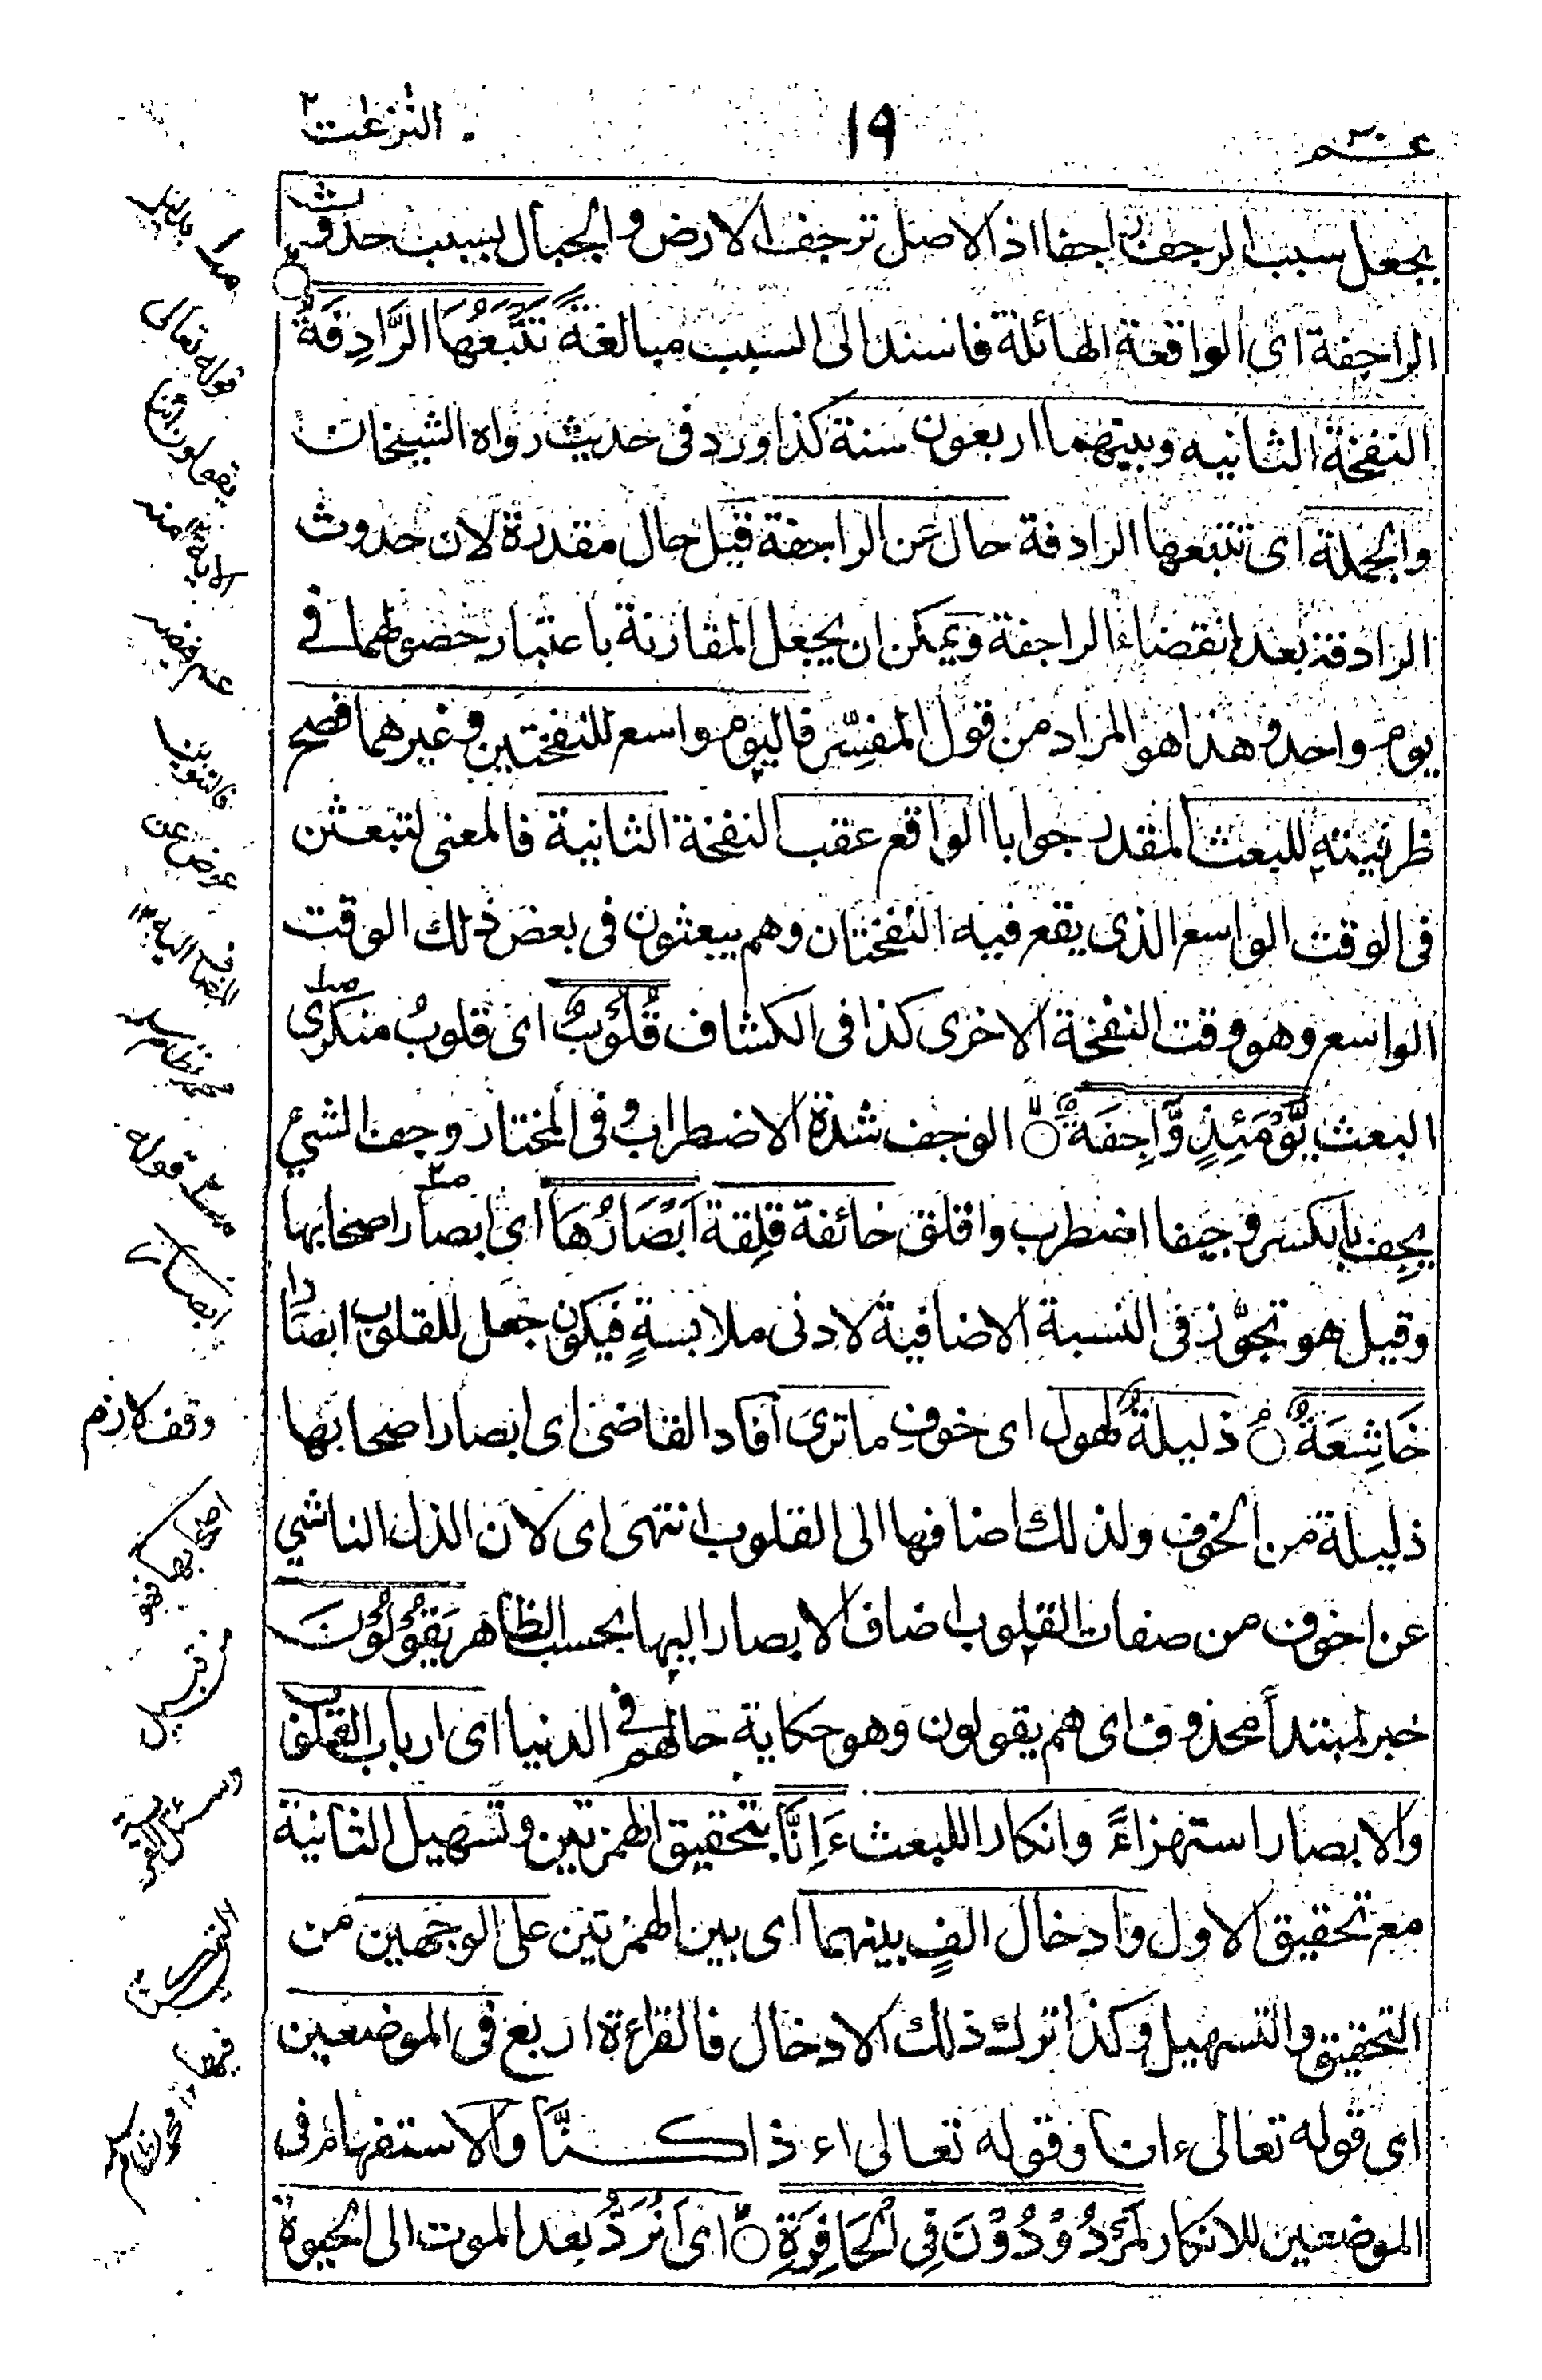 عم ٣٠
١٩
النزعت ٢
بجعل سبب الرجف راجفا اذ الاصل ترجف الارض والجبال بسبب حدوث
الراجفة اى الواقعة الهائلة فاسند الى السبب مبالغة تَتْبَعُهَا الرَّادِفَةُ
النفخة الثانيه وبينهما اربعون سنة كذا ورد فى حديث رواه الشيخان
والجملة اى تتبعها الرادفة حال من الراجفة قيل حال مقدرة لان حدوث
الرادفة بعد انقضاء الراجفة ويمكن ان يجعل المقارنة باعتبار حصولهما فى
يوم واحد وهذا هو المراد من قول المفسّر فاليوم واسع للنفختين وغيرهما فصح
ظرفيته للبعث المقدر جوابا الواقع عقب النفخة الثانية فالمعنى لتبعثن
فى الوقت الواسع الذى يقع فيه النفختان وهم يبعثون فى بعض ذلك الوقت
الواسع وهو وقت النفخة الاخرى كذا فى الكشاف قُلُوْبٌ اى قلوبُ منكرى
البعث يَّوْمَئِذٍ وَّاجِفَةٌ الوجف شدة الاضطراب وفى المختار وجف الشئ
يجِف بالكسر وجيفا اضطرب واقلق خائفة قلِقة اَبْصَارُهَا اى ابصار اصحابها
وقيل هو تجوّز فى النسبة الاضافية لادنى ملابسةٍ فيكون جعل للقلوب ابصارا
خَاشِعَةٌ ذليلةٌ لهول اى خوفِ ما ترى افاد القاضى اى ابصار اصحابها
ذليلة من الخوف ولذلك اضافها الى القلوب انتهى اى لان الذل الناشي
عن اخوف من صفات القلوب اضاف الابصار اليها بحسب الظاهر يَقُوْلُوْنَ
خبر لمبتدأ محذوف اى هم يقولون وهو حكاية حالهم فى الدنيا اى ارباب القلوب
والابصار استهزاءً وانكارا للبعث ءَاِنَّا بتحقيق الهمزتين وتسهيل الثانية
مع تحقيق الاول وادخال الفٍ بينهما اى بين الهمزتين على الوجهين من
التحقيق والتسهيل وكذا ترك ذلك الادخال فالقراءة اربع فى الموضعين
اى قوله تعالى ءانا وقوله تعالى اءذا كنَّا والاستفهام فى
الموضعين للانكار لَمَرْدُوْدُوْنَ فِى الْحَافِرَةِ اى اَنُرَدُّ بعد الموت الى الحيوة
قوله تعالى
فالتنوين
عوض عن
المضاف اليه ١٢
قوله
ابصار
وقف لازم
اصحابها